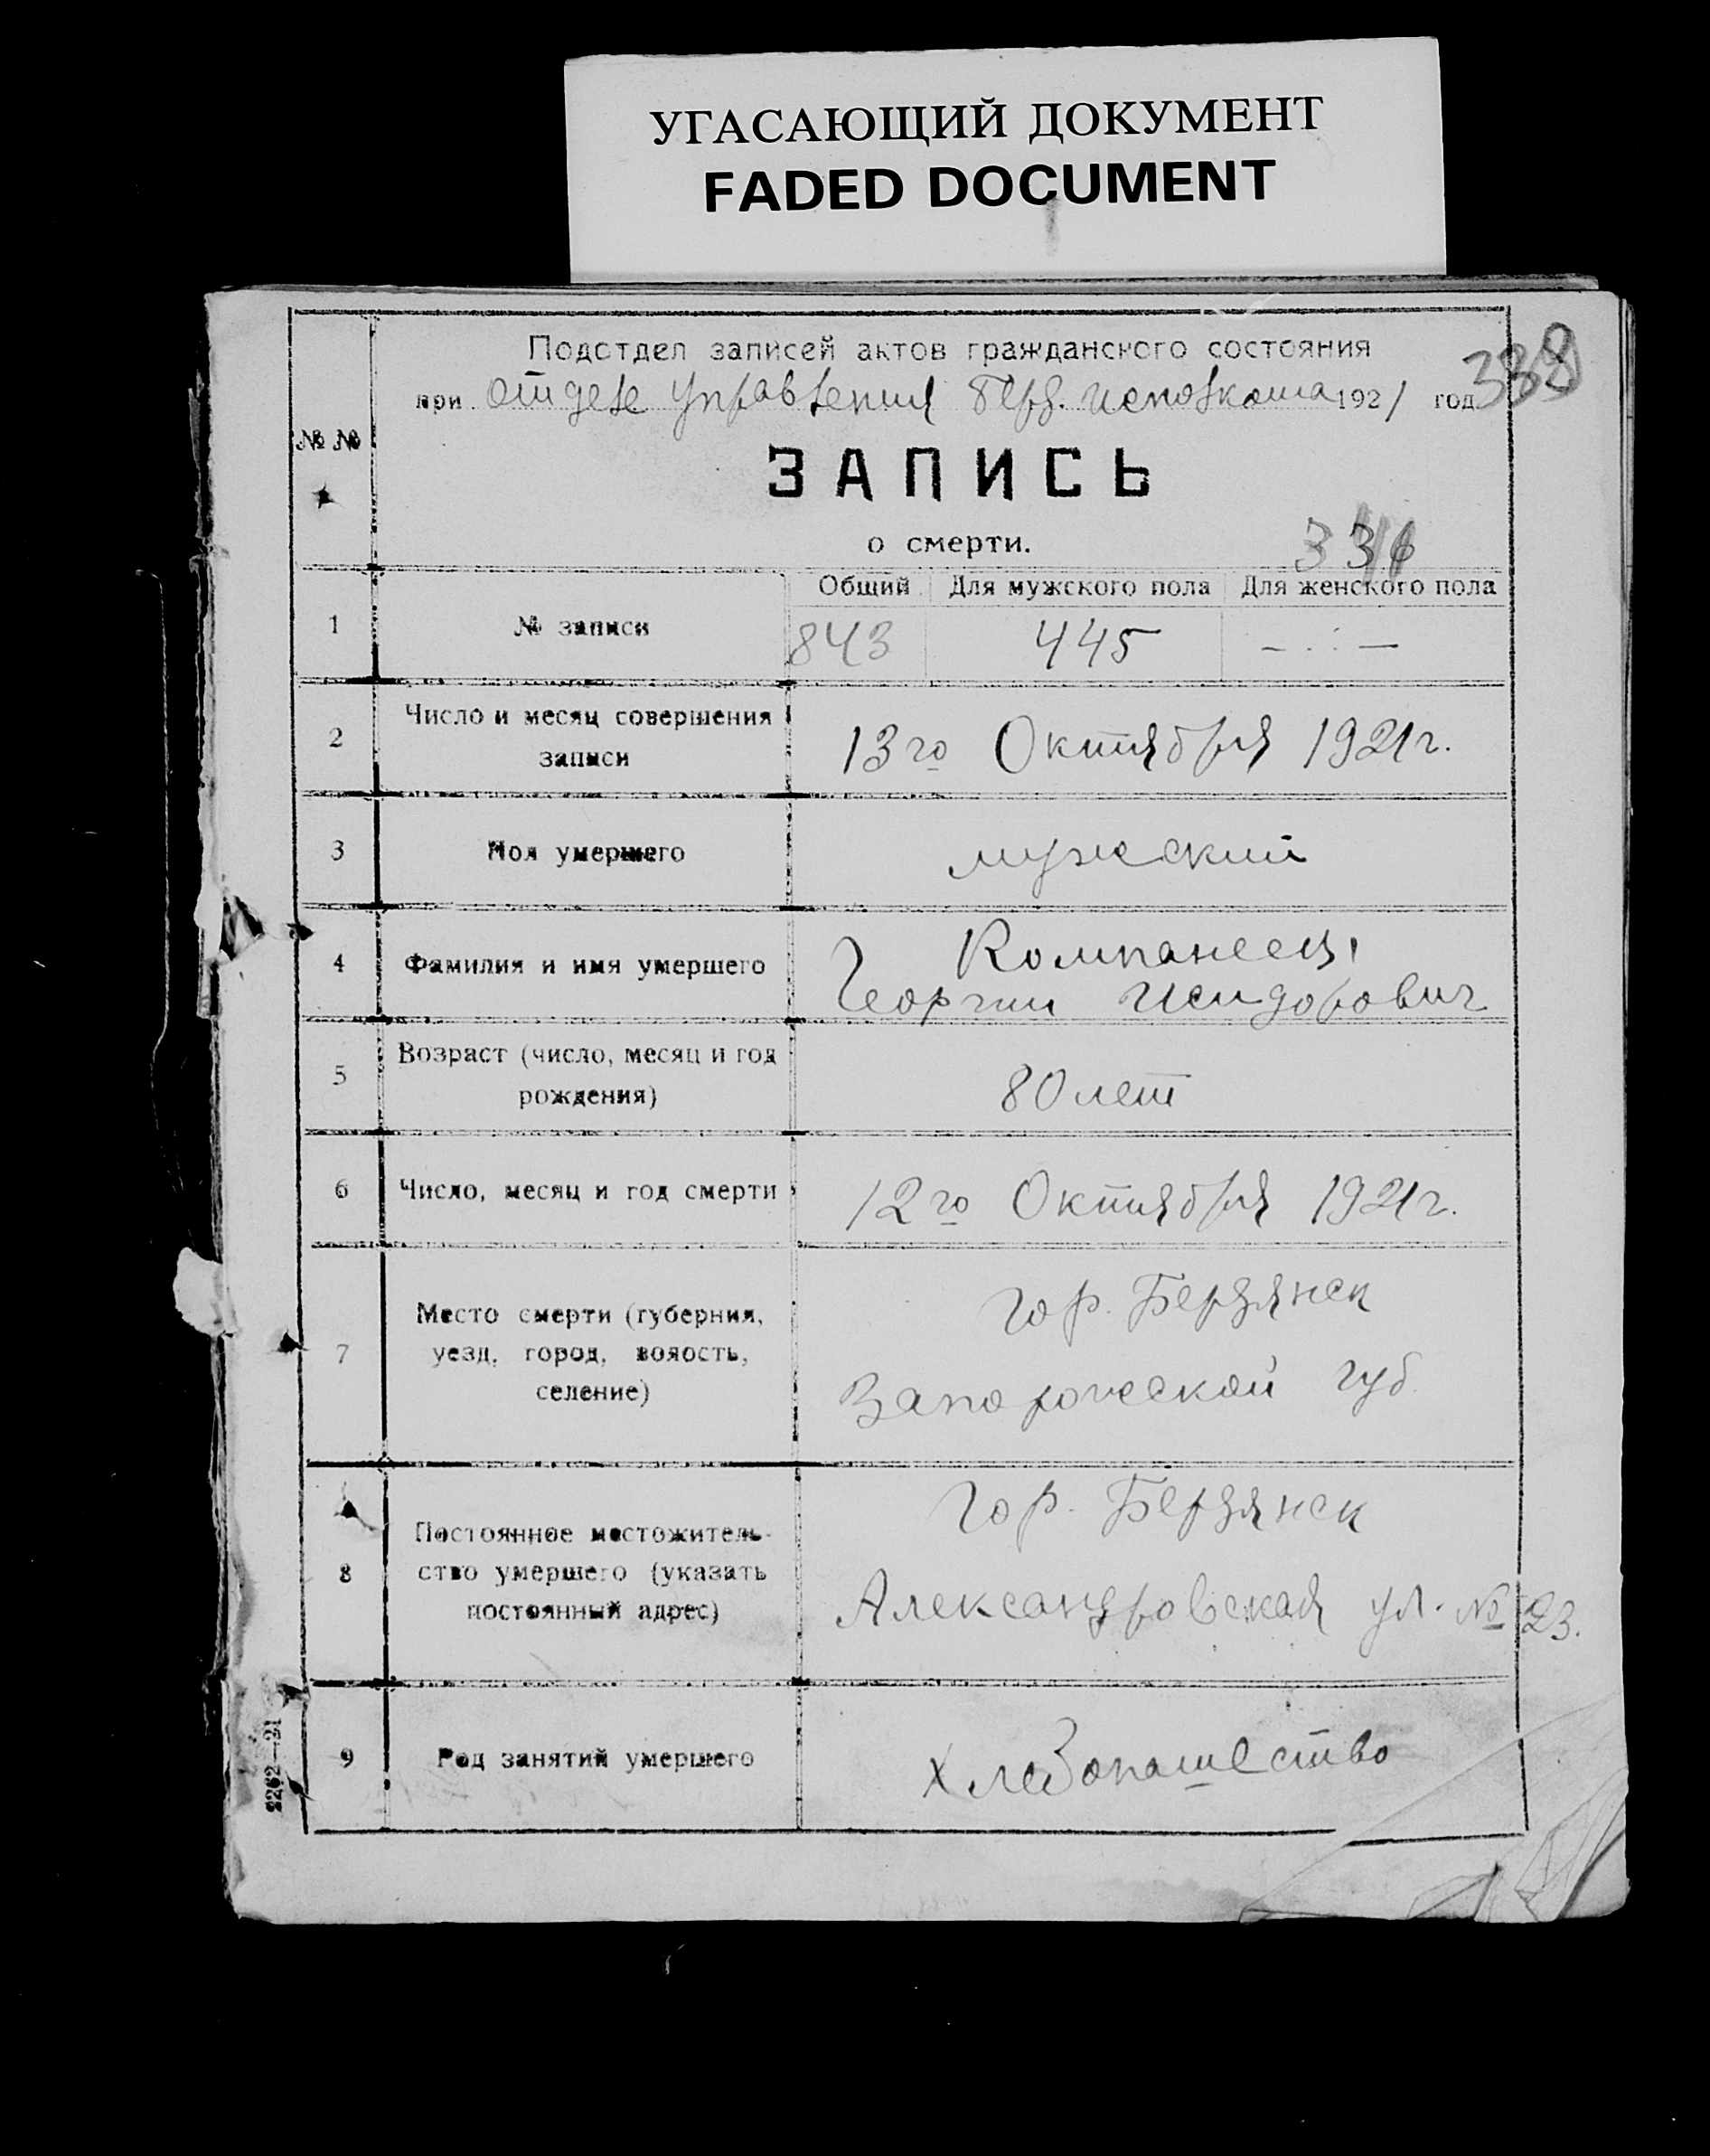 УГАСАЮЩИЙ ДОКУМЕНТ
FADED DOCUMENT
388
Подотдел записей актов гражданского состояния
при Отделе Управления Берд. исполкома 1921 год
№ №
ЗАПИСЬ
о смерти.
336
Общий Для мужского пола Для женского пола
1 № записи 843 445 — . : —
2 Число и месяц совершения
записи
13го Октября 1921г.
3 Пол умершего мужский
4 Фамилия и имя умершего
Компанеец
Георгий Исидорович
5 Возраст (число, месяц и год
рождения)
80 лет
6 Число, месяц и год смерти 12го Октября 1921г.
7 Место смерти (губерния,
уезд, город, волость,
селение)
гор. Бердянск
Запорожской губ.
8 Постоянное местожитель-
ство умершего (указать
постоянный адрес)
гор. Бердянск
Александровская ул. № 23.
9 Род занятий умершего хлебопашество
2262—21